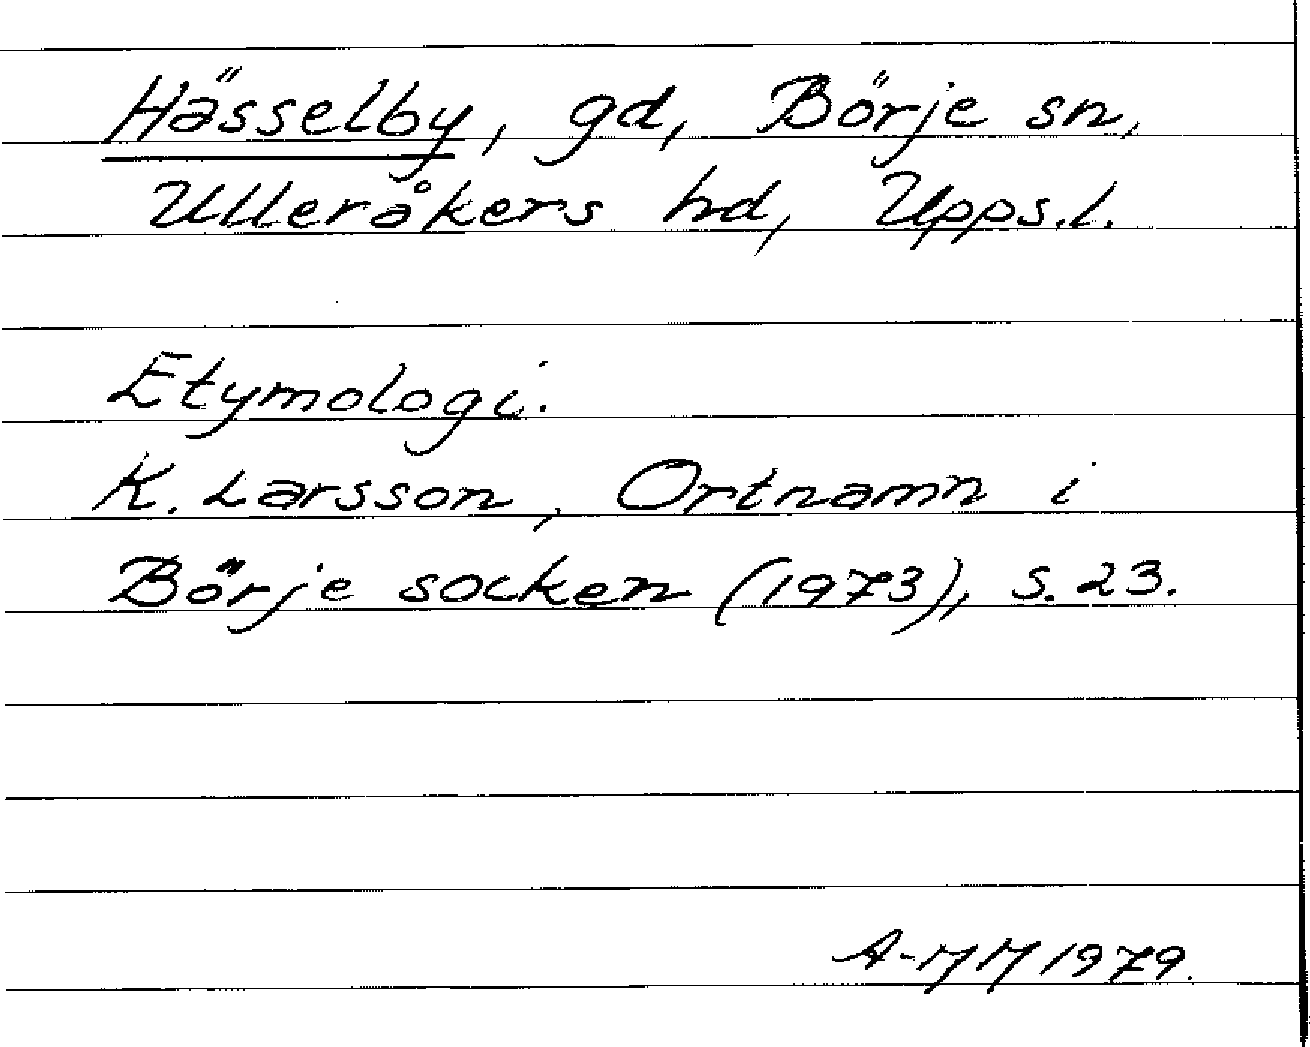 Hässelby, gd, Börje sn,
Ulleråkers hd, Upps.l.
Etymologi.
K. Larsson, Ortnamn i
Börje socken (1973), s. 23.
A-MM 1979.